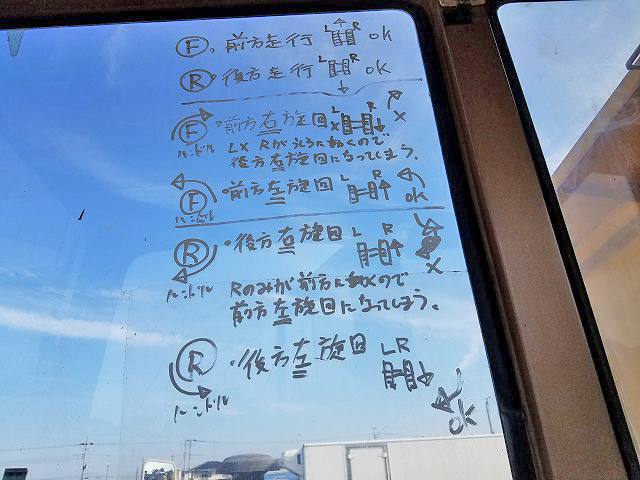 F 前方走行 L R OK
R 後方走行 L R OK
F ・前方右旋回 L R X X
ハンドル LX Rがうしろに動くので
後方右旋回になってしまう。
F ・前方左旋回 L R OK
ハンドル
R ・後方右旋回 L R X
ハンドル Rのみが前方に動くので
前方左旋回になってしまう。
R ・後方左旋回 LR OK
ハンドル